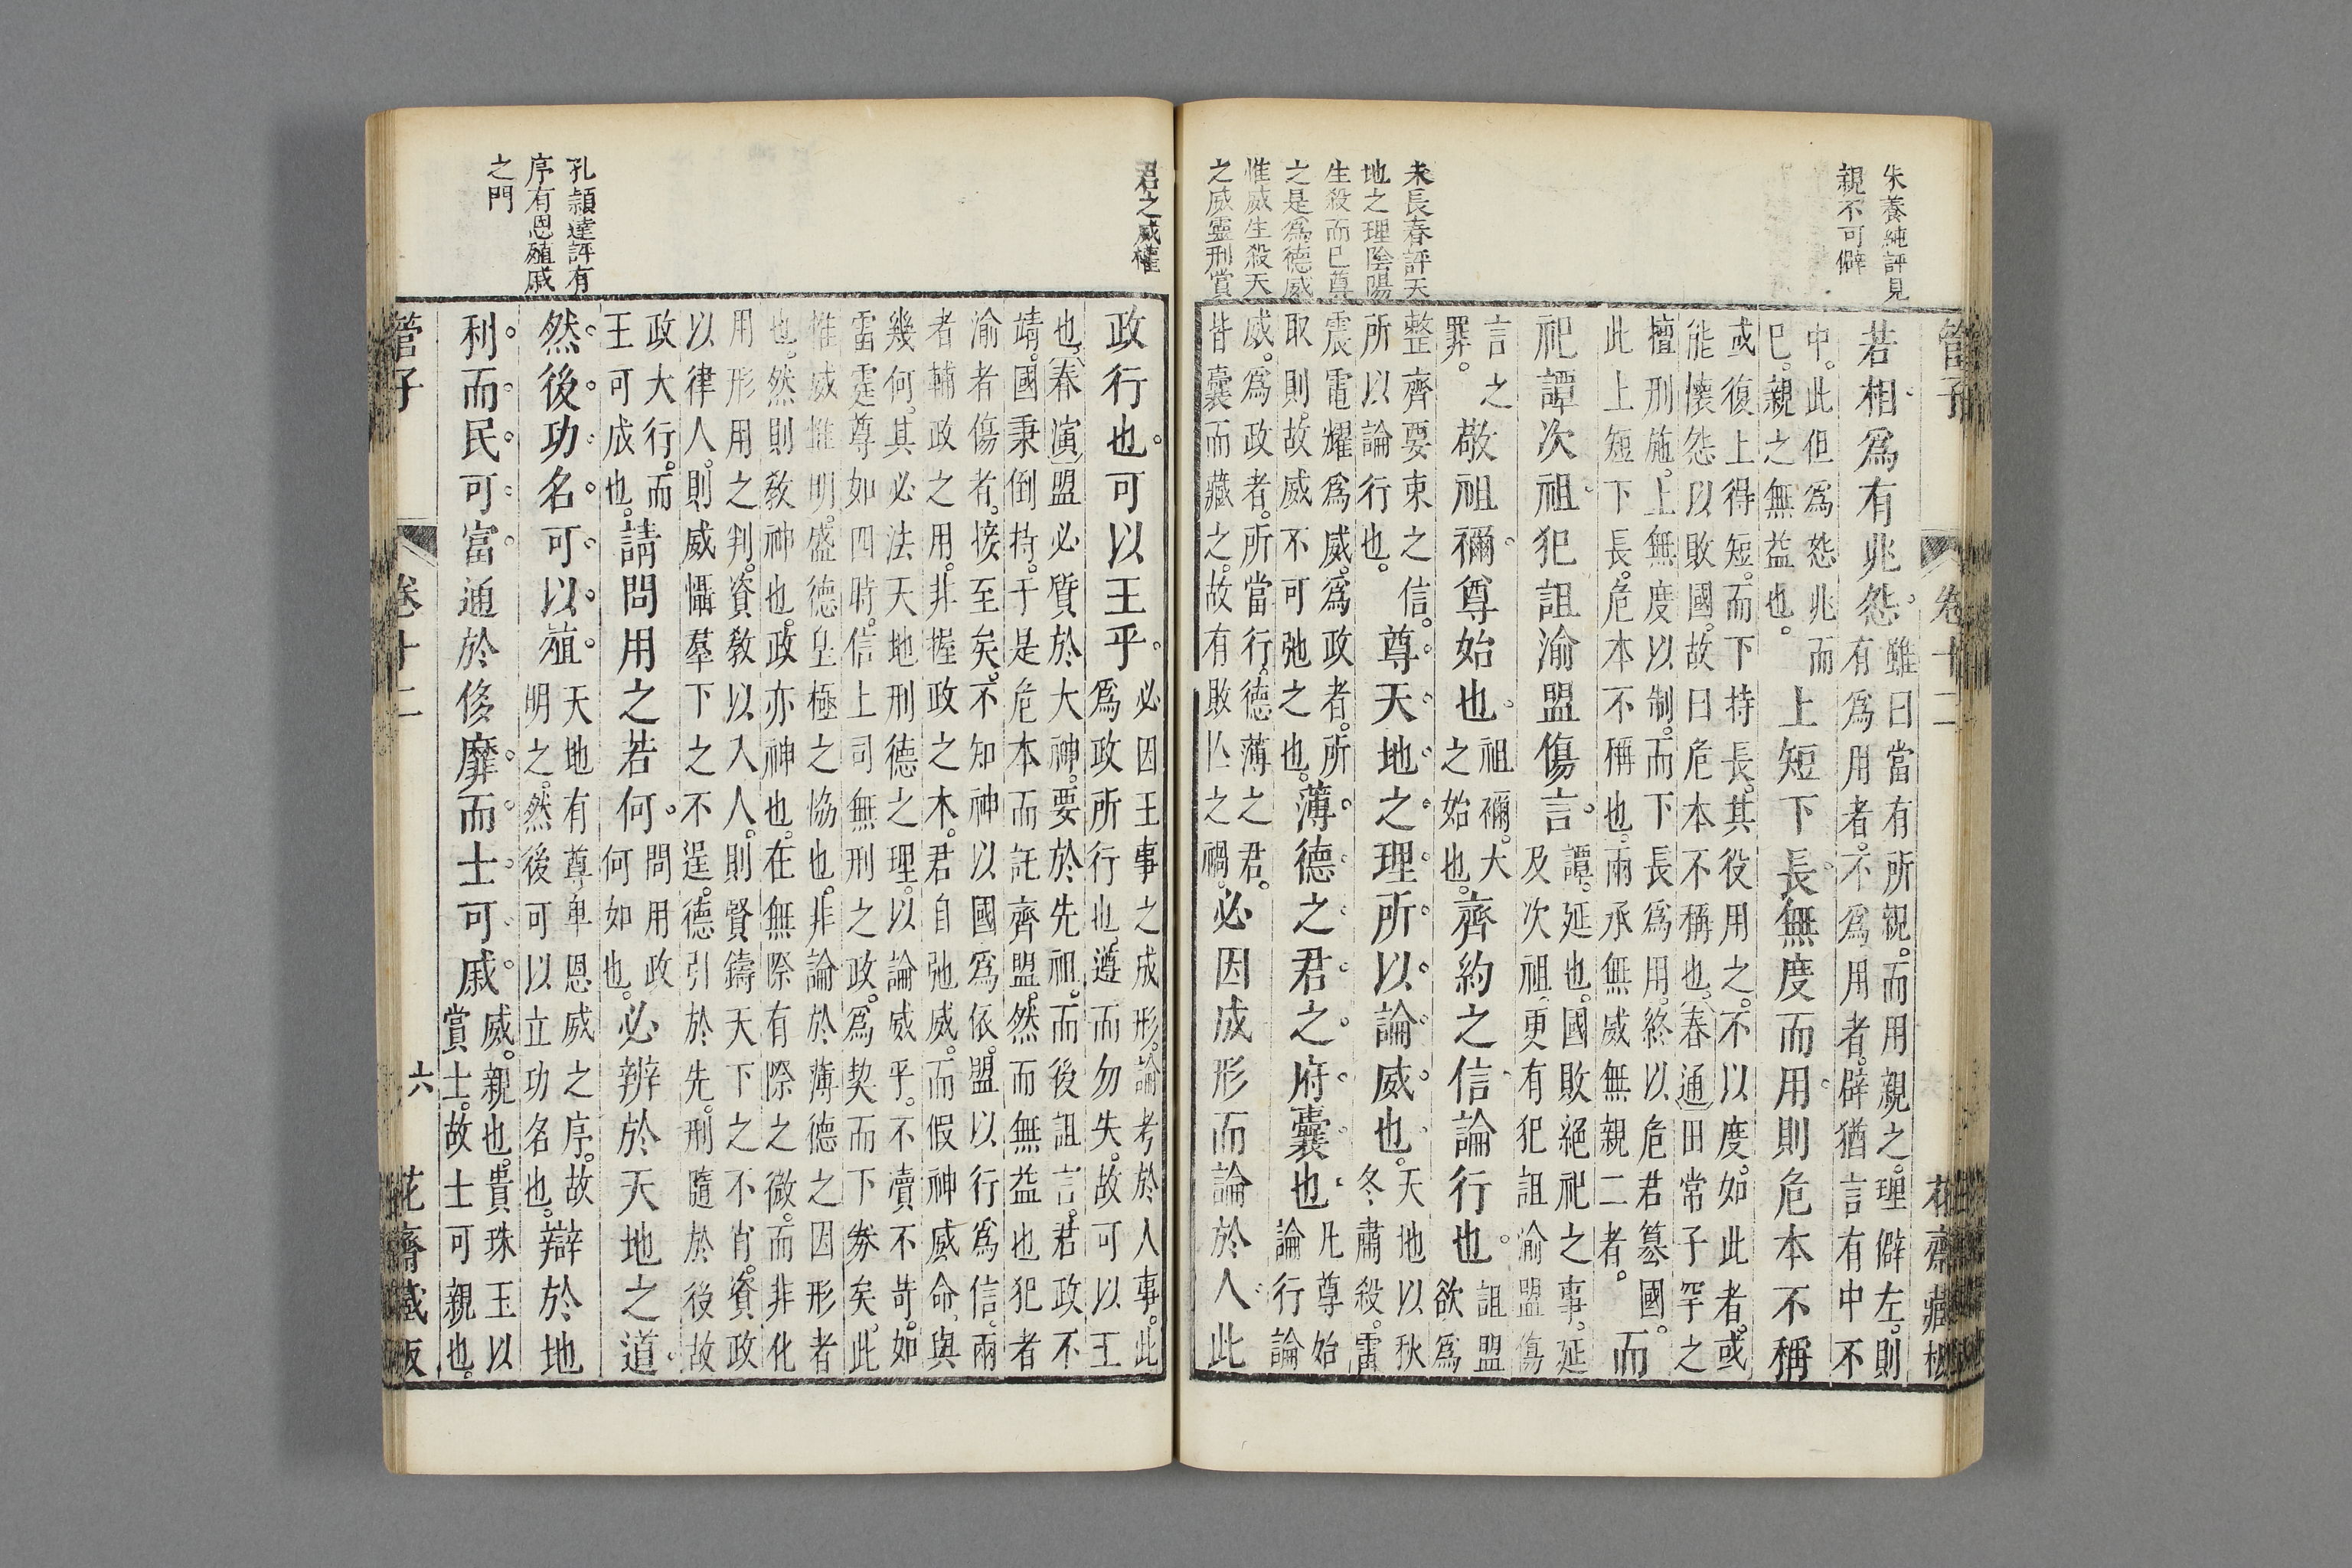 管子 卷十二 花齋藏板
朱養純評見
親不可僻
若相爲有兆怨
雖曰當有所親而用親之理僻左則
有爲用者不爲用者辟猶言有中不
中此但爲怨兆而
巳親之無益也
上短下長無度而用則危本不稱
或復上得短而下持長其役用之不以度如此者或
能懷怨以敗國故曰危本不稱也(春通)田常子罕之
擅刑施上無度以制而下長爲用終以危君簒國
此上短下長危本不稱也兩承無威無親二者
而
祀譚次祖犯詛渝盟傷言
譚延也國敗絕祀之事延
及次祖更有犯詛渝盟傷
言之
罪
敬祖禰尊始也
祖禰大
之始也
齊約之信論行也
詛盟
欲爲
朱長春評天
地之理陰陽
生殺而巳尊
之是爲德威
惟威生殺天
之威靈刑賞
整齊要束之信
所以論行也
尊天地之理所以論威也
天地以秋
冬肅殺雷
震電耀爲威爲政者所
取則故威不可弛之也
薄德之君之府囊也
凡尊始
論行論
威爲政者所當行德薄之君
皆囊而藏之故有敗亾之禍
必因成形而論於人此
君之威權
政行也可以王乎
必因王事之成形論考於人事此
爲政所行也遵而勿失故可以王
也(春演)盟必質於大神要於先祖而後詛言君政不
靖國秉倒持于是危本而託齊盟然而無益也犯者
渝者傷者接至矣不知神以國爲依盟以行爲信兩
者輔政之用非握政之木君自弛威而假神威命與
幾何其必法天地刑德之理以論威乎不瀆不苛如
雷霆尊如四時信上司無刑之政爲契而下券矣此
惟威惟明盛德皇極之協也非論於薄德之因形者
也然則教神也政亦神也在無際有際之微而非化
用形用之判資教以入人則賢鑄天下之不肖資政
以律人則威懾羣下之不逞德引於先刑隨於後故
政大行而
王可成也
請問用之若何
問用政
何如也
必辨於天地之道
孔頴達評有
序有恩殖戚
之門
然後功名可以殖
天地有尊卑恩威之序故
明之然後可以立功名也
辯於地
利而民可富通於侈靡而士可戚
威親也貴珠玉以
賞士故士可親也
管子 卷十二 六 花齋藏板